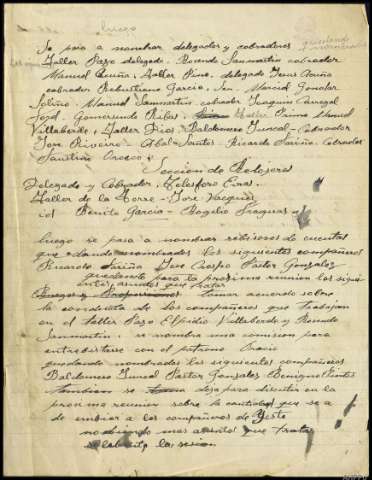 luego
Se paso a nombrar delegados y cobradores quedando
Taller Pazo delegado Rosendo Sanmartin cobrador
Manuel Acuña, Taller Pino delegado Jesus Acuña
cobrador Sebastiano Garcia, Marcial Gonzlar
Soliño Manuel Sanmartin cobrador Joaquin Carregal
Gomersindo Rifas Taller Prima Manuel
Villaverde, Taller Rico Baldomero Juncal Cobrador
Jose Riveiro Abal Santos Ricardo Fariña Cobrador
Faustino Orosco
Seccion de Relojera
Delegado y Cobrador, Telesforo Eiras.
Taller de la Torre Jose Vasques
id Benito Garcia Rogelio Fraguas
luego se paso a nombrar rebisores de cuentas
que dando nombrados los siguientes compañeros
Ricardo Fariña Jose Crespo Pastor Gonzales
quedando para la proxima reunion los siguientes
asuntos que tratar
Ruegos y Proposiciones tomar acuerdo sobre
la conducta de los compañeros que trabajan
en el Taller Pazo Elpidio Villaberde y Rosendo
Sanmartin, se nombra una comision para
entrebistarse con el patrono Oracio
quedando nombrados los siguientes compañeros
Baldomero Juncal Pastor Gonzales Benigno Pintos
tambien se deja para discutir en la
proxima reunion sobre la cantidad que se a
de embiar a los compañeros de Yeste
no abiendo mas asunto que tratar
se lebanta la sesion